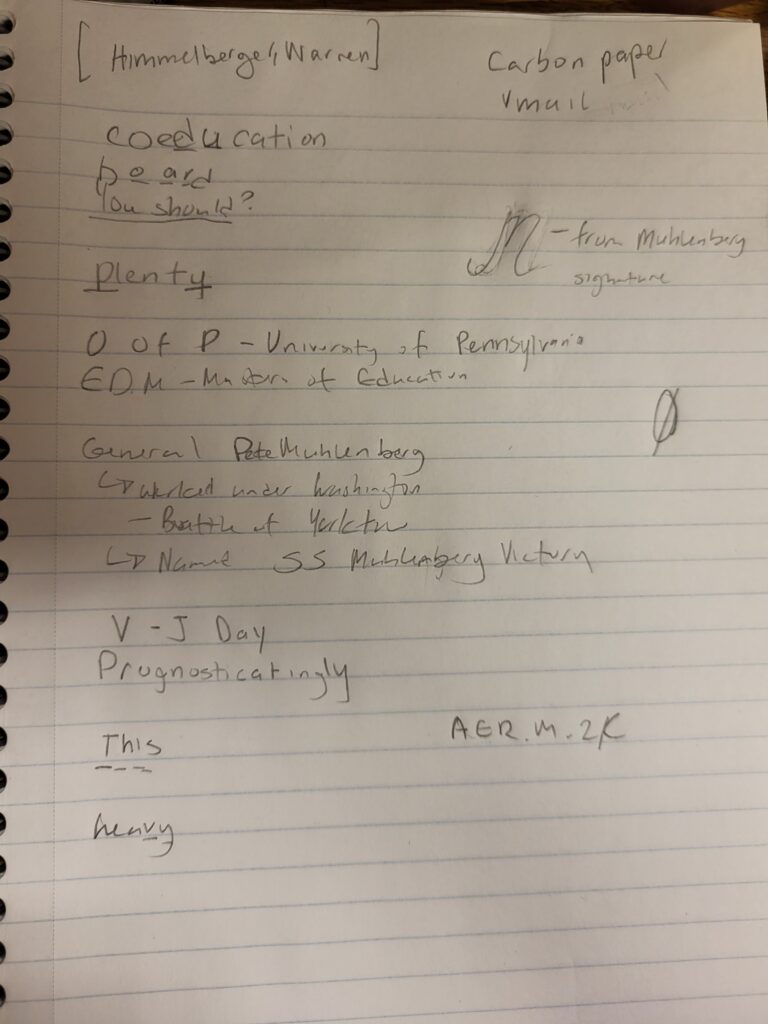 [Himmelberger, Warren]
Carbon paper
vmail
coeducation
board
You should?
M - from Muhlenberg
signature
Plenty
U of P - University of Pennsylvania
EDM - Masters of Education
General Pete Muhlenberg
↳ worked under Washington
- Battle of Yorktown
↳ Named SS Muhlenberg Victory
V-J Day
Prognosticatingly
This
A.E.R.M.2
heavy